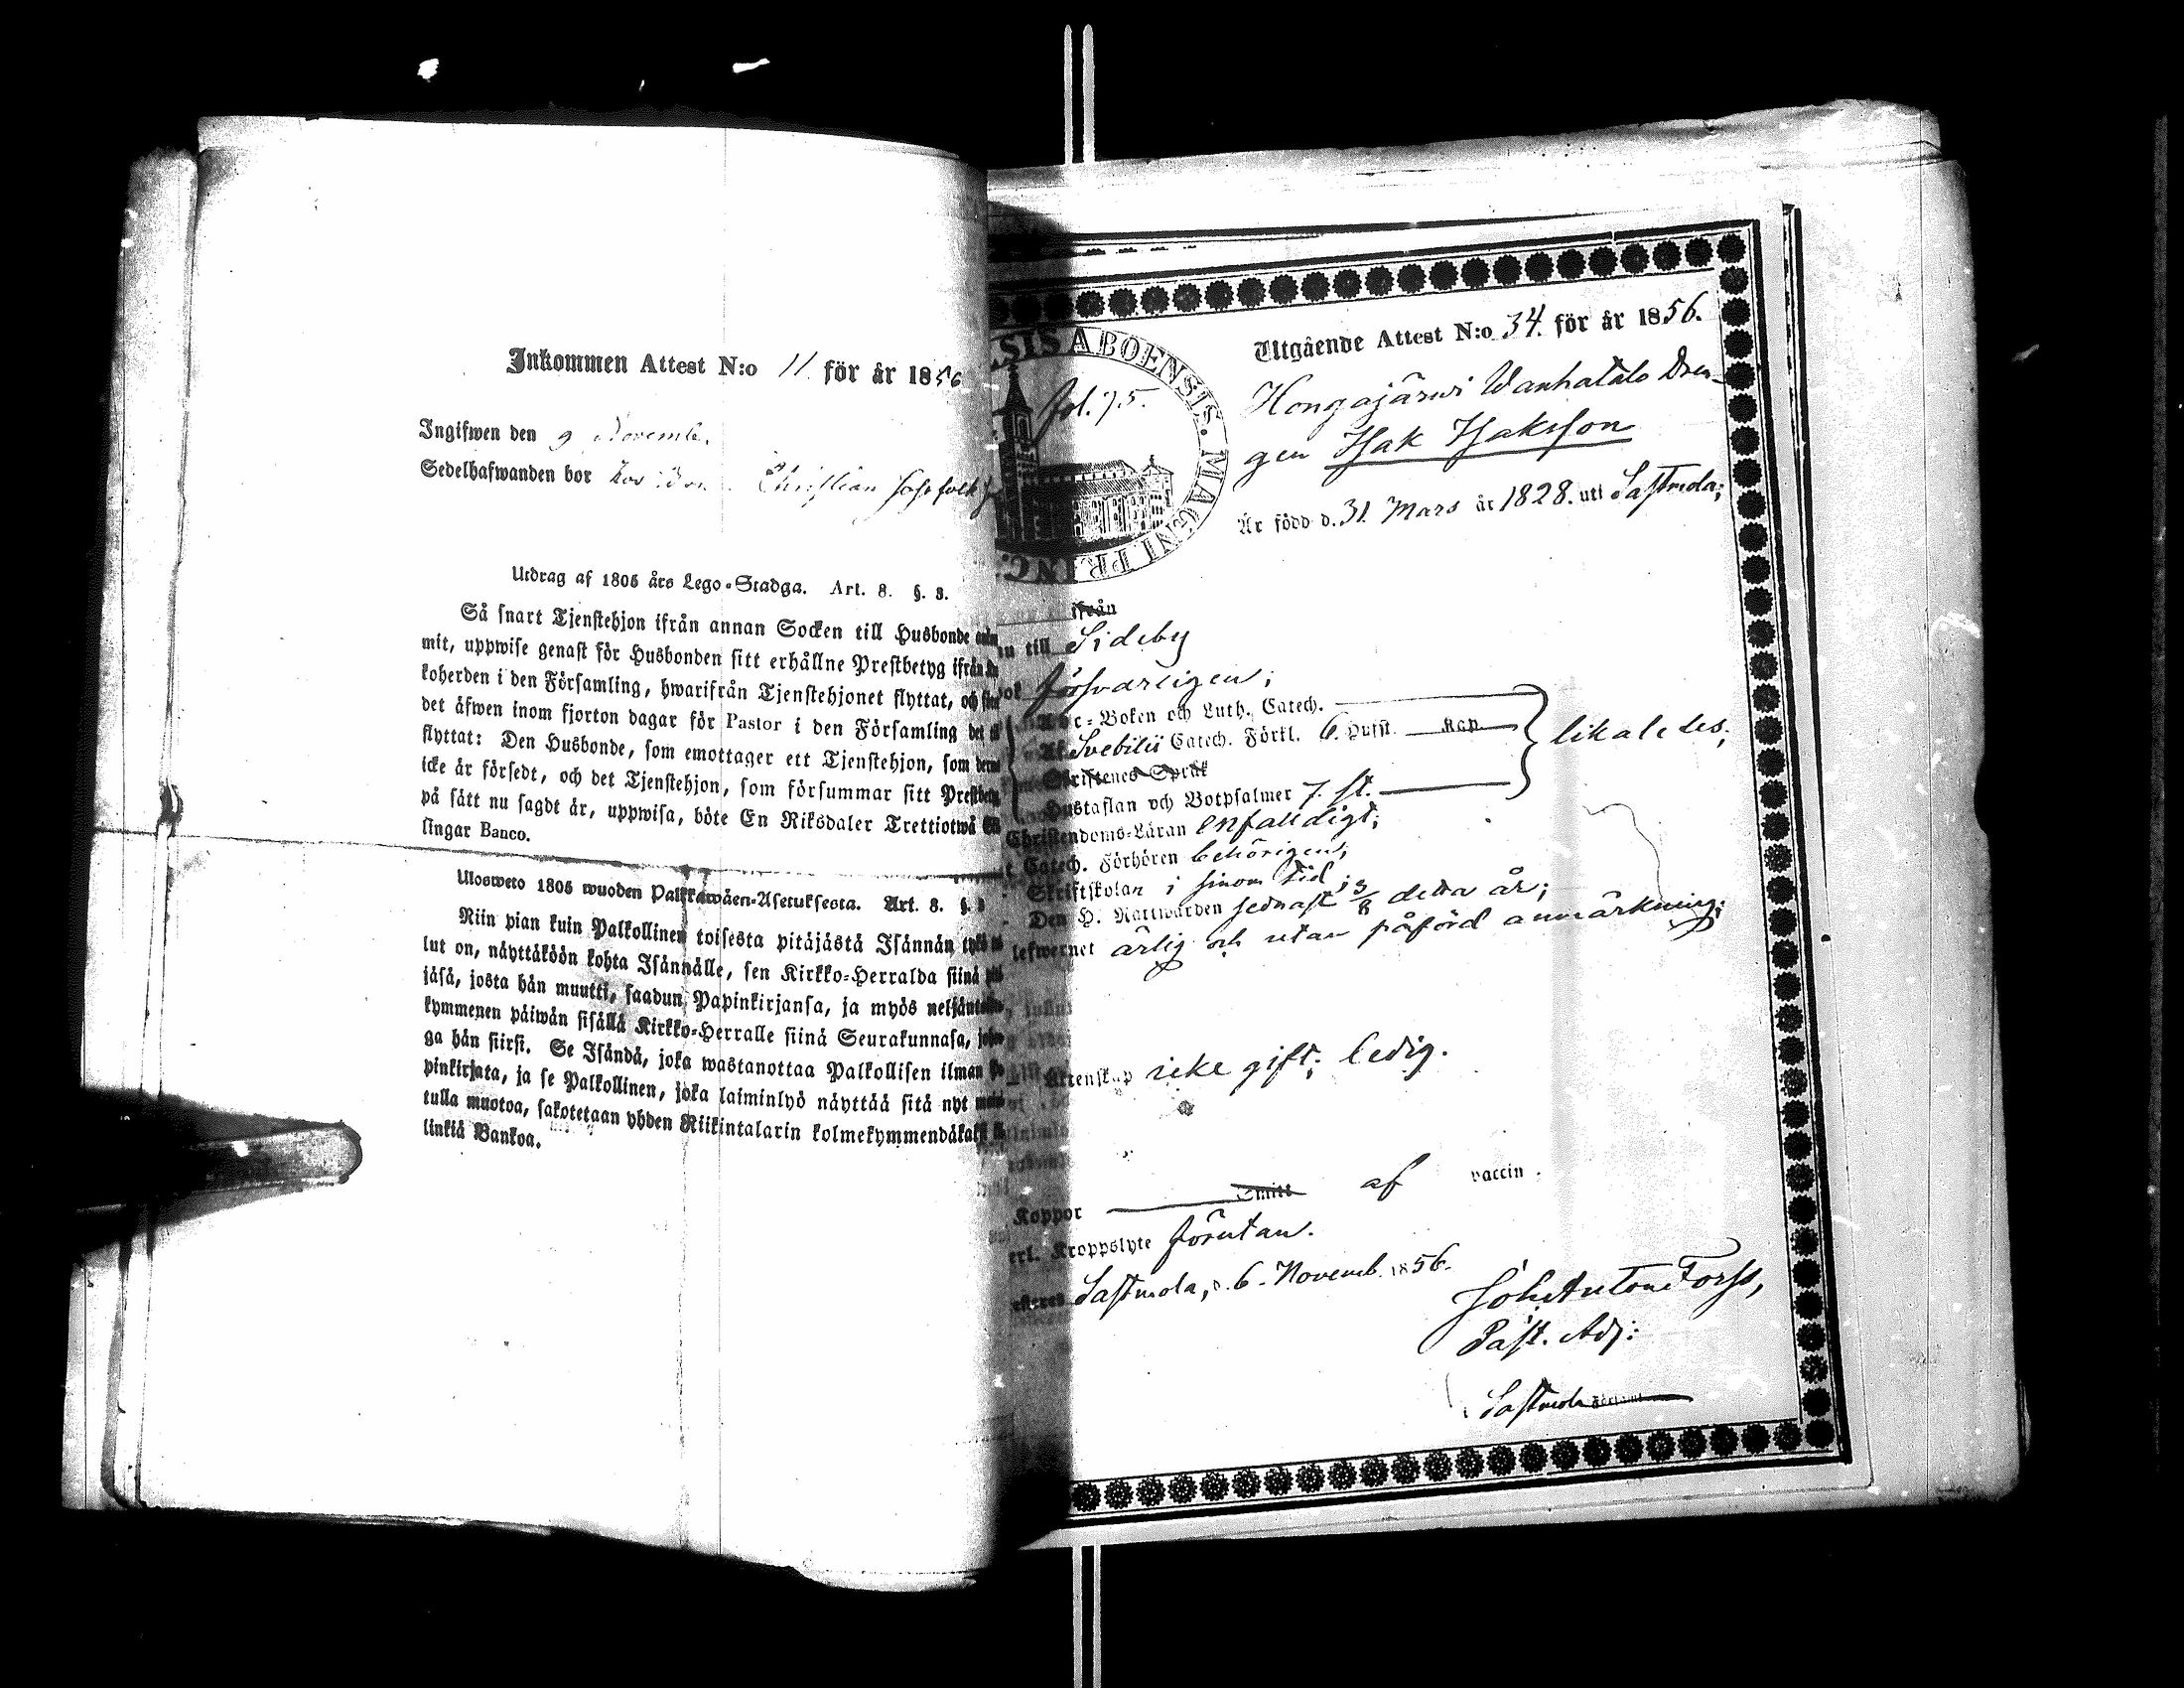 Inkommen Attest N:o 11. för år 1856
Ingifwen den 9 Novemb.
Sedelhafwanden bor hos Christian
Utdrag af 1805 års Lego-Stadga. Art. 8. §. 3.
Så snart Tjenstehjon ifrån annan Socken till Husbonde
mit, uppwise genast för Husbonden sitt erhållne Prestbetyg ifrån
koherden i den Församling, hwarifrån Tjenstehjonet flyttat, och
det äfwen inom fjorton dagar för Pastor i den Församling det
flyttat: Den Husbonde, som emottager ett Tjenstehjon, som
icke är försedt, och det Tjenstehjon, som försummar sitt
på sätt nu sagdt är, uppwisa, böte En Riksdaler Trettiotwå
lingar Banco.
Ulosweto 1805 wuoden Palkkawäen-Asetuksesta. Art. 8. §.
Niin pian kuin Palkollinen toisesta pitäjästä Isännän
lut on, näyttäköön kohta Isännälle, sen Kirkko-Herralda siinä
jäsä, josta hän muutti, saadun Papinkirjansa, ja myös
kymmenen päiwän sisällä Kirkko-Herralle siinä Seurakunnasa,
ga hän siirsi. Se Isändä, joka wastanottaa Palkollisen ilman
pinkirjata, ja se Palkollinen, joka laiminlyö näyttää sitä nyt
tulla muotoa, sakotetaan yhden Riikintalarin
linkiä Bankoa.
SIS ABOENSIS. MAGNI PRINC.
fol. 75.
Utgående Attest N:o 34. för år 1856.
Hongajärwi Wanhatalo Dren-
gen Isak Isaksson
Är född d. 31. Mars år 1828. uti Sastmola;
ifrån
till Sideby
försvarligen;
Abc-Boken och Luth. Catech.
Svebilii Catech. Förkl. 6. Hufst. Kap
likaledes;
Skriftenes Språk
Hustaflan och Botpsalmer 7. st.
Christendoms-Läran enfaldigt;
Catech. Förhören behörigen;
Skriftskolan i sinom tid;
Den H. Nattwarden sednast 13/8 detta år;
lefwernet ärlig och utan påförd anmärkning;
Äktenskap icke gift; ledig.
Koppor Smitt af vaccin.
Kroppslyte förutan.
Sastmola, d. 6. Novemb. 1856.
Joh. Anton Forss,
Past. Adj:
i Sastmola Församl.